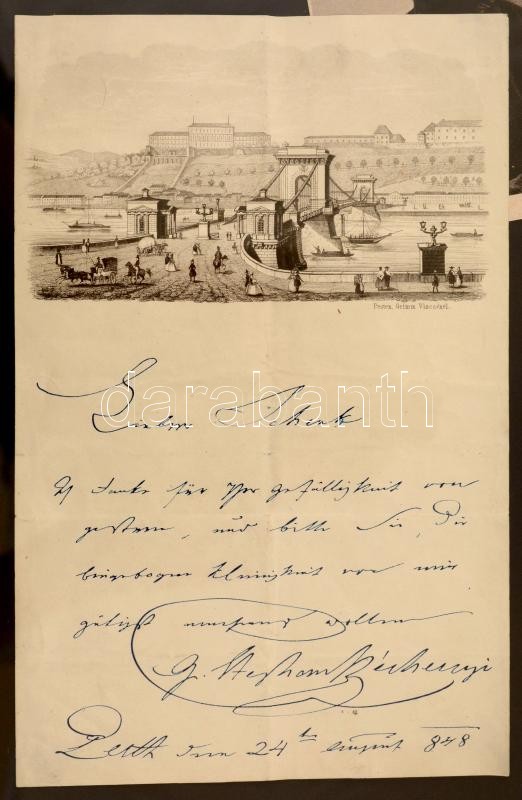 Pesten, Geibin Vinczénél.
darabanth
Lieber Schenk
Ich danke für Ihre Gefälligkeit von
gestern, und bitte Sie, die
beigebogene Kleinigkeit von mir
gütigst wollen
G. Stephan Széchenyi
Pesth den 24ten August 848